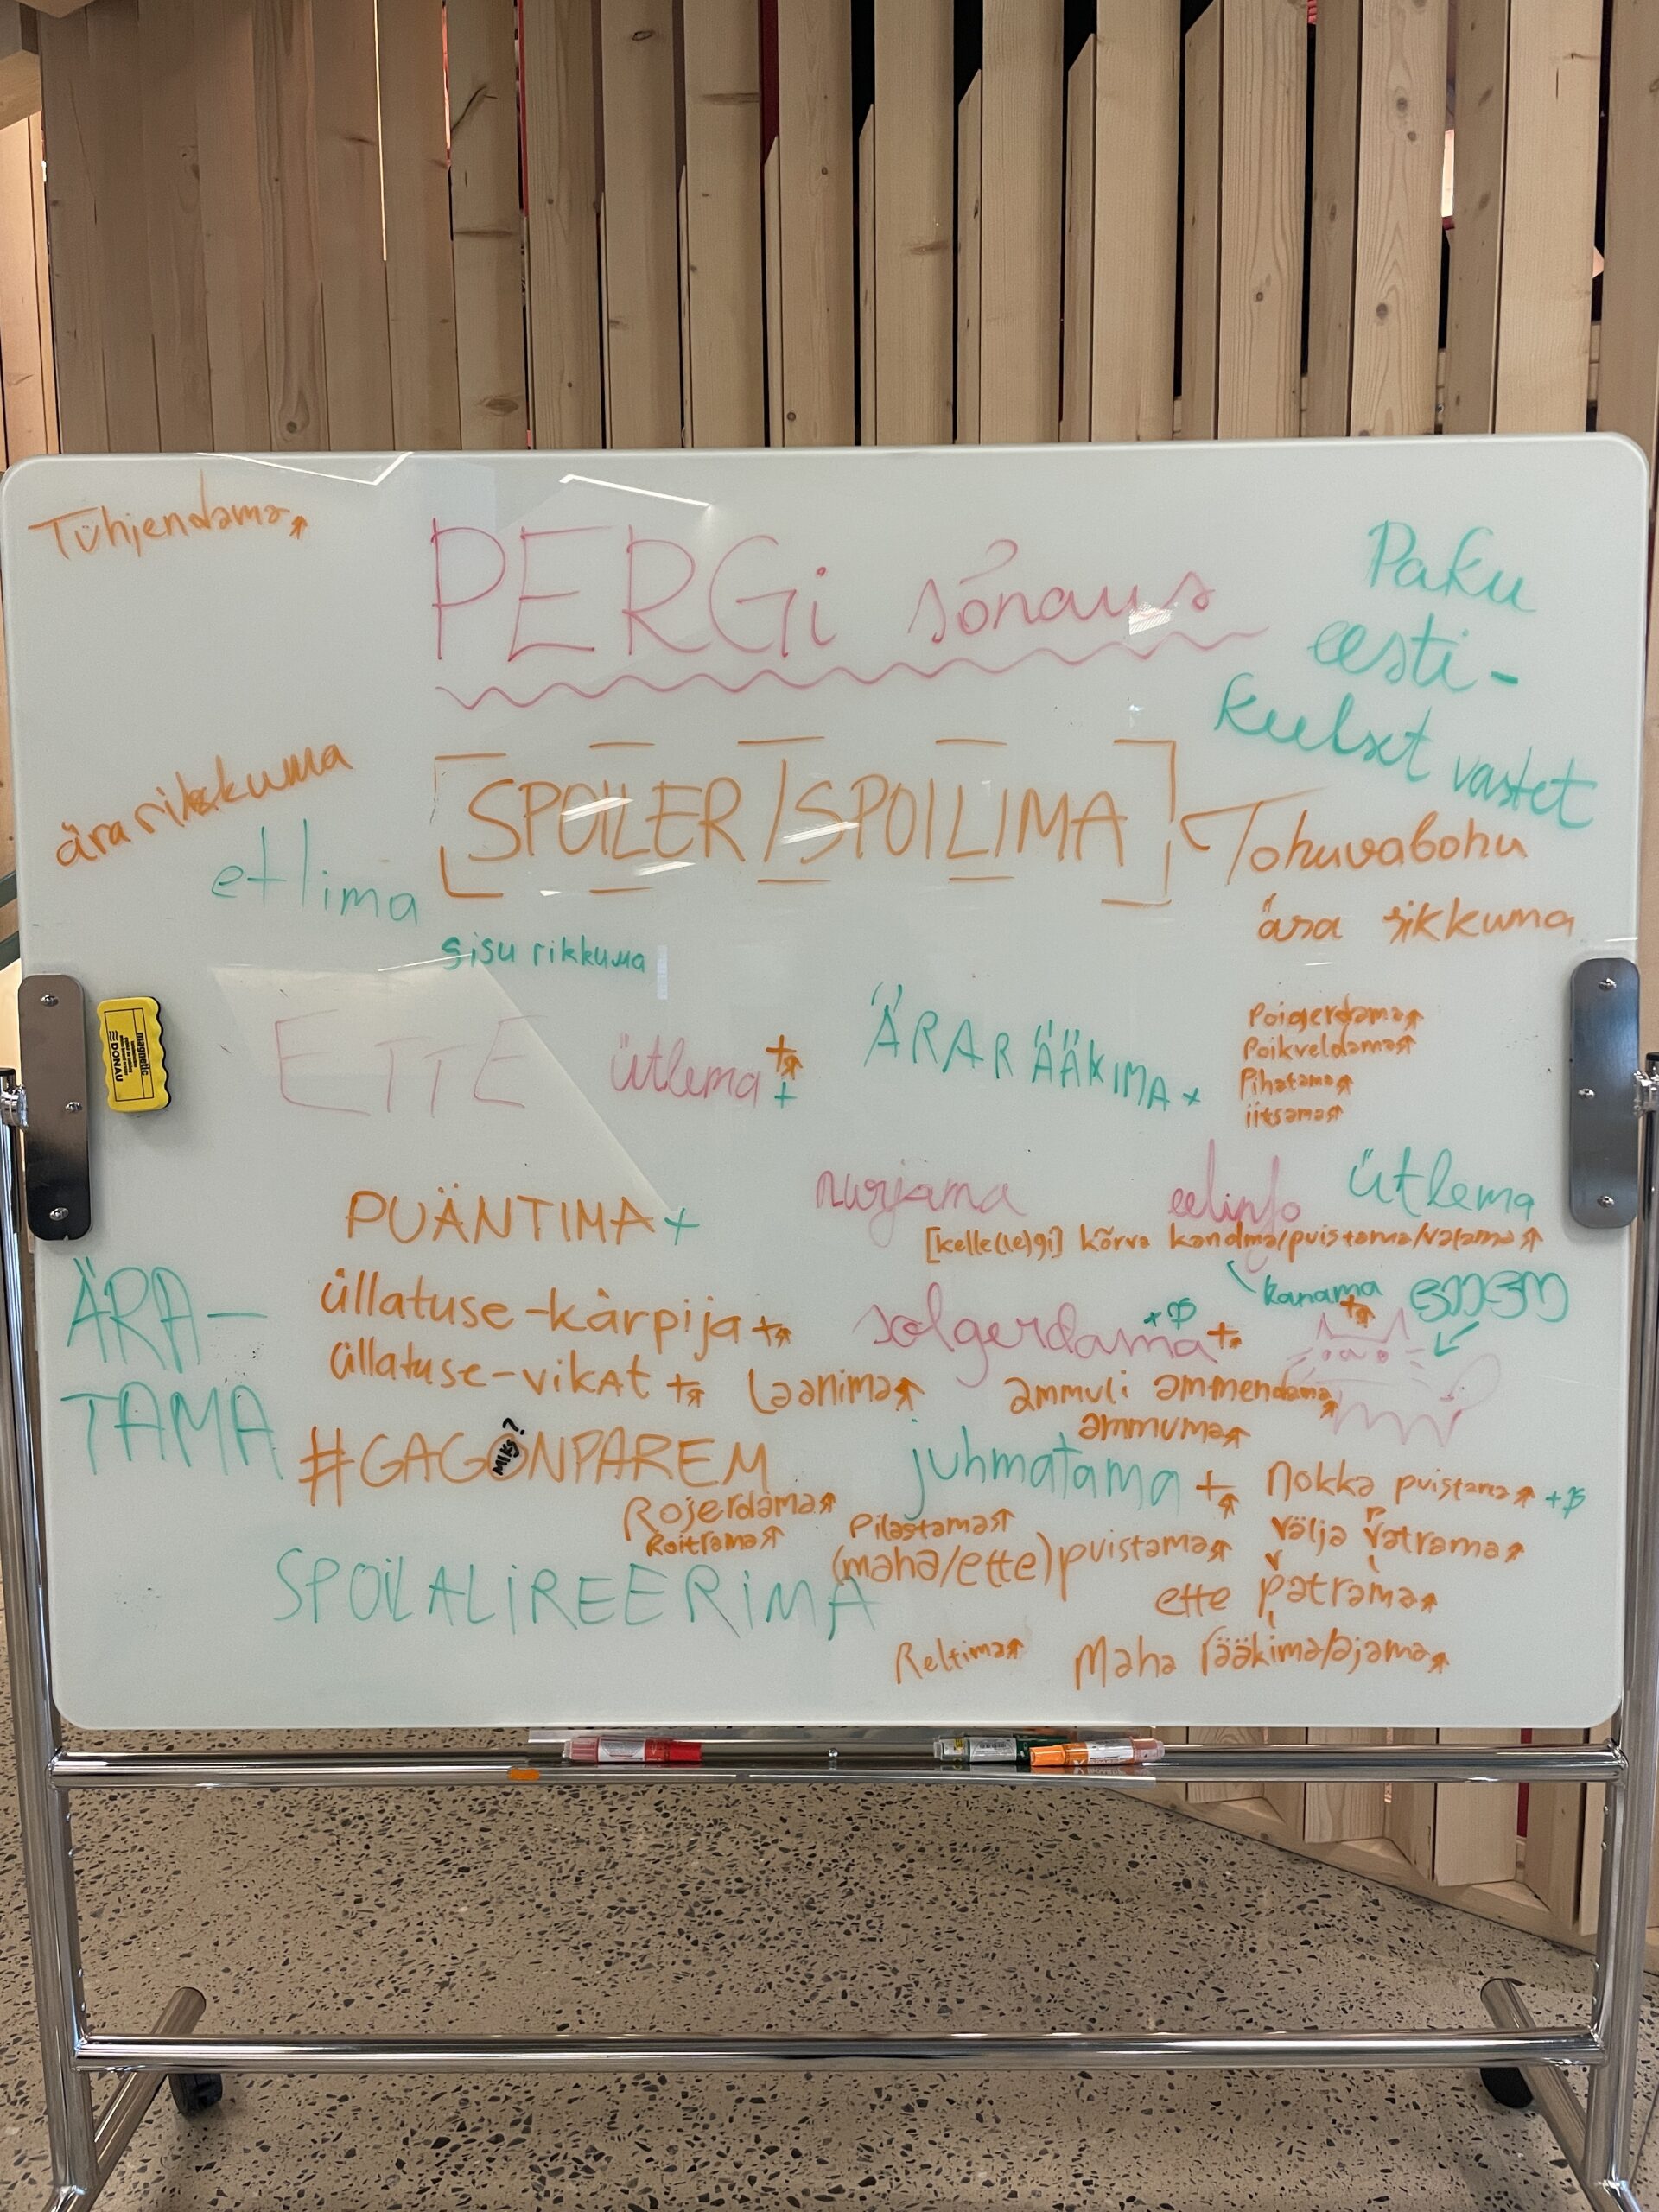 Tühjendama
PERGi sõnaus
Paku
eesti-
keelset vastet
ära rikkuma
SPOILER/SPOILIMA
Tohuvabohu
ära rikkuma
ettima
sisu rikkuma
ETTE ütlema ++
ÄRARÄÄKIMA +
Poigerdama
Poikveldama
Pihatama
iitsama
magnetic
DONAU
PUÄNTIMA +
nurjama
eelinfo
ütlema
[kelle(le)gi] kõrva kandma/puistama/valama
kanama
ÄRA-
TAMA
üllatuse-kärpija +
üllatuse-vikat +
Laanima
solgerdama +
ammuli ammendama
ammuma
#GAGONPAREM
MIKS?
juhmatama +
nokka puistama +
Rojerdama
Roitrama
Pilastama
(maha/ette) puistama
välja vatrama
ette patrama
SPOILALIREERIMA
Reltima
Maha rääkima/ajama